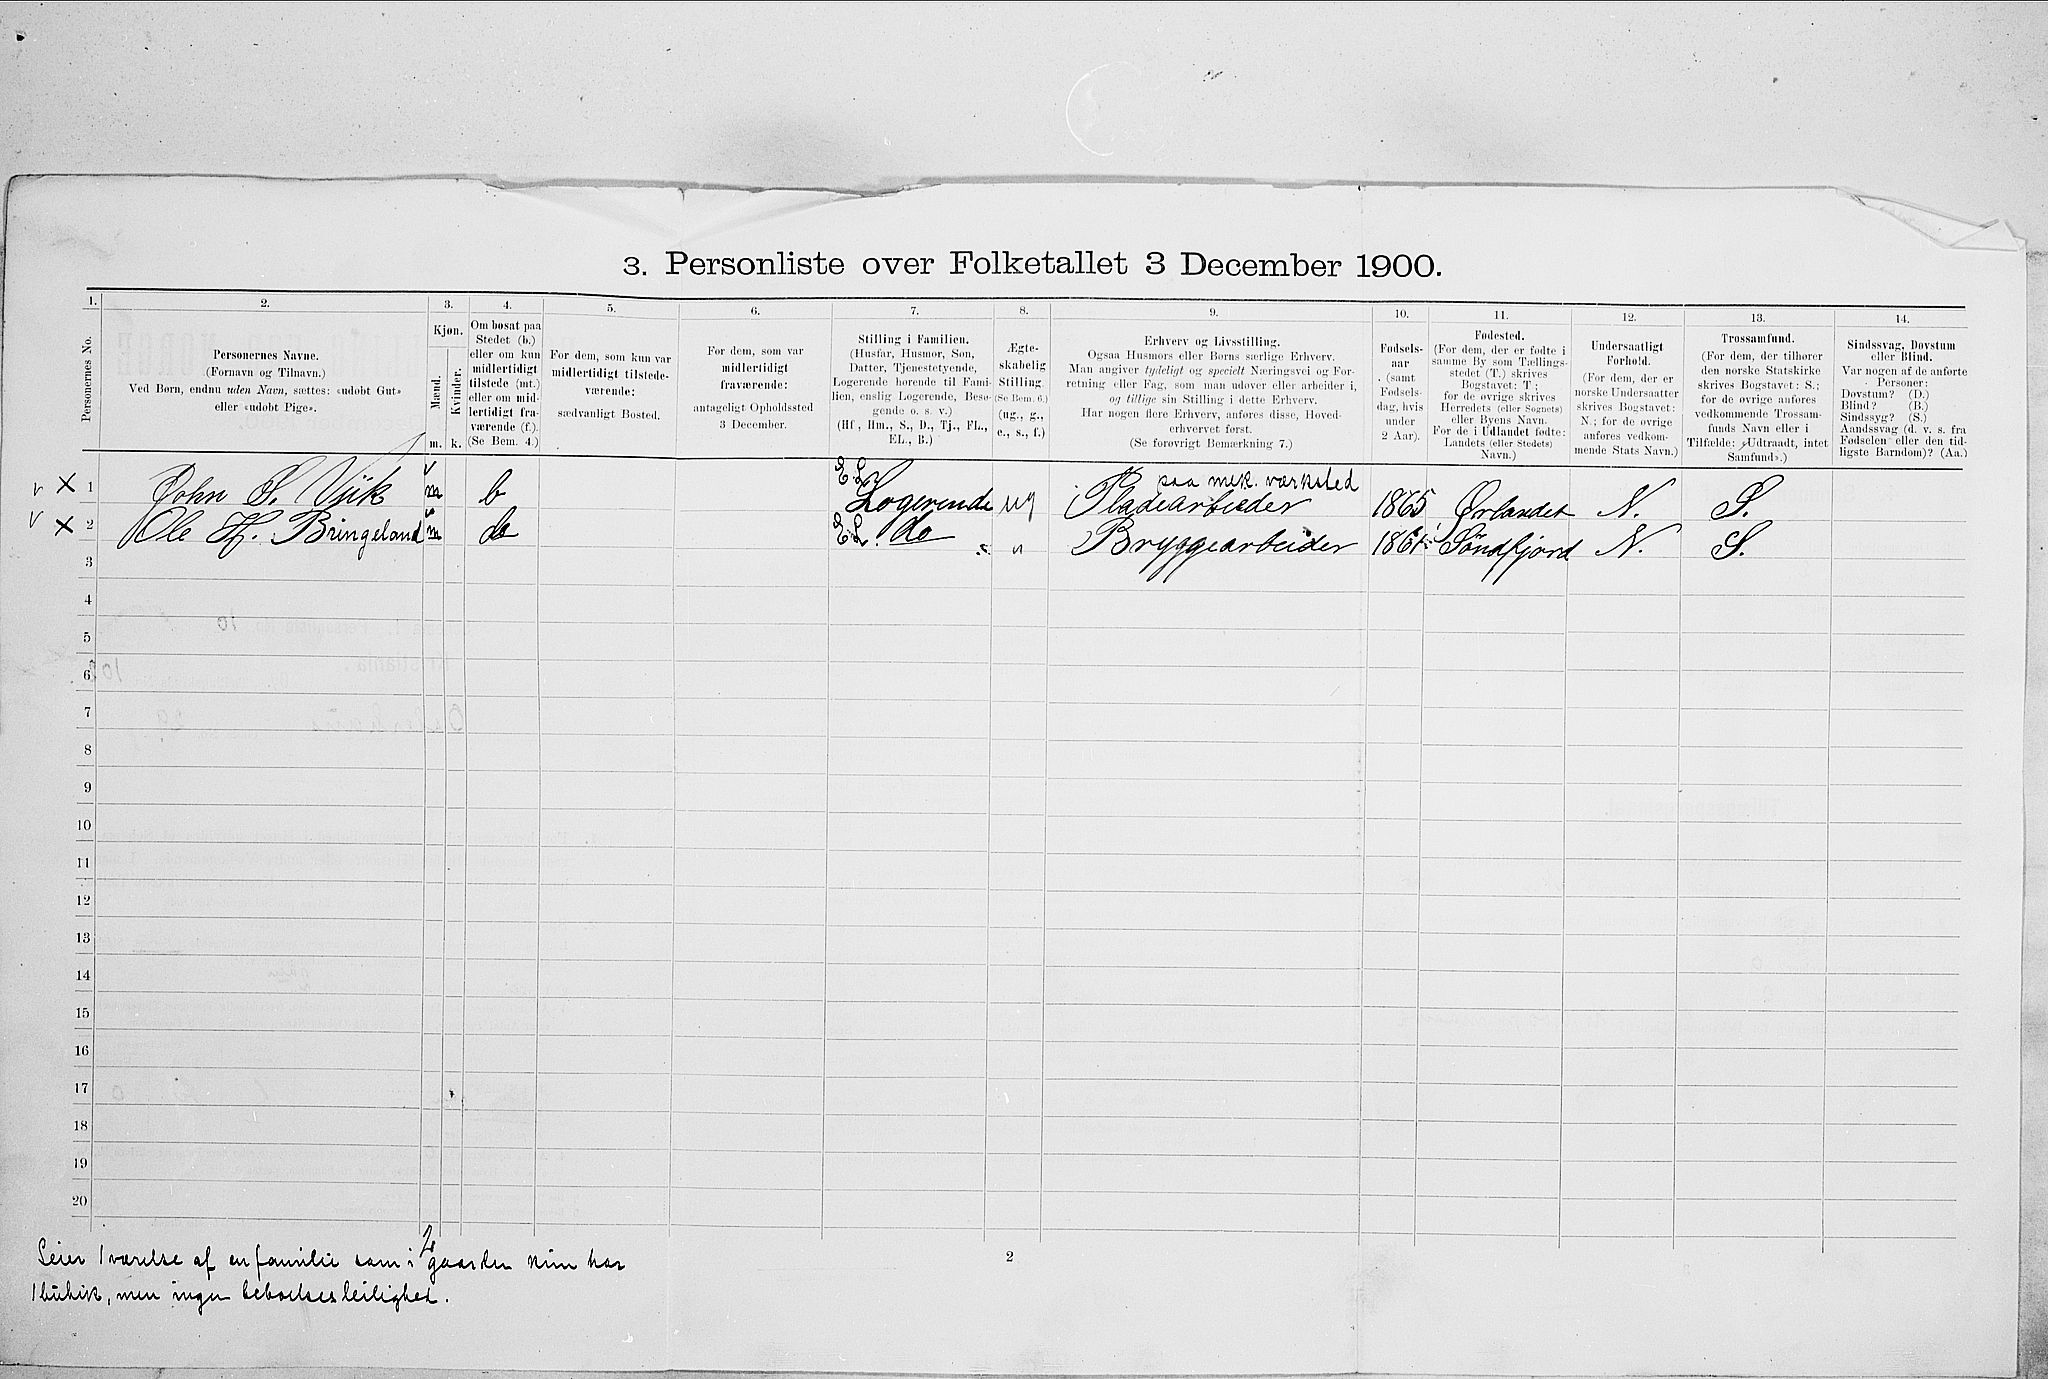 3. Personliste over Folketallet 3 December 1900.
1. 2. 3. 4. 5. 6. 7. 8. 9. 10. 11. 12. 13. 14.
Personernes No.
Personernes Navne.
(Fornavn og Tilnavn.)
Ved Børn, endnu uden Navn, sættes: «udøbt Gut»
eller «udøbt Pige».
Kjøn.
Mænd.
Kvinder.
m. k.
Om bosat paa
Stedet (b.)
eller om kun
midlertidigt
tilstede (mt.)
eller om mid-
lertidigt fra-
værende (f.).
(Se Bem. 4.)
For dem, som kun var
midlertidigt tilstede-
værende:
sædvanligt Bosted.
For dem, som var
midlertidigt
fraværende:
antageligt Opholdssted
3 December.
Stilling i Familien.
(Husfar, Husmor, Søn,
Datter, Tjenestetyende,
Logerende hørende til Fami-
lien, enslig Logerende, Besø-
gende o. s. v.)
(Hf, Hm., S., D., Tj., FL.,
EL., B.)
Ægte-
skabelig
Stilling.
(Se Bem. 6.)
(ug., g.,
e., s., f.)
Erhverv og Livsstilling.
Ogsaa Husmors eller Børns særlige Erhverv.
Man angiver tydeligt og specielt Næringsvei og For-
retning eller Fag, som man udøver eller arbeider i,
og tillige sin Stilling i dette Erhverv.
Har nogen flere Erhverv, anføres disse, Hoved-
erhvervet først.
(Se forøvrigt Bemærkning 7.)
Fødsels-
aar
(samt
Fødsels-
dag, hvis
under
2 Aar).
Fødested.
(For dem, der er fødte i
samme By som Tællings-
stedet (T.) skrives
Bogstavet: T;
for de øvrige skrives
Herredets (eller Sognets)
eller Byens Navn.
For de i Udlandet fødte:
Landets (eller Stedets)
Navn.)
Undersaatligt
Forhold.
(For dem, der er
norske Undersaatter
skrives Bogstavet:
N.; for de øvrige
anføres vedkom-
mende Stats Navn.)
Trossamfund.
(For dem, der tilhører
den norske Statskirke
skrives Bogstavet: S.;
for de øvrige anføres
vedkommende Trossam-
funds Navn eller i
Tilfælde: «Udtraadt, intet
Samfund».)
Sindssvag, Døvstum
eller Blind.
Var nogen af de anførte
Personer:
Døvstum? (D.)
Blind? (B.)
Sindssyg? (S.)
Aandssvag (d. v. s. fra
Fødselen eller den tid-
ligste Barndom)? (Aa.)
v X 1 John S. Vik m b E.L. Logerende ug Pladearbeider paa mek. værksted 1865 Ørlandet N. S.
v X 2 Ole H. Bringeland m do E.L. do " Bryggearbeider 1861 Söndfjord N. S.
3
4
5
6
7
8
9
10
11
12
13
14
15
16
17
18
19
20
Leier 1 værelse af en familie som i 2 gaarden kun har
1 butik, men ingen beboelsesleilighed.
2